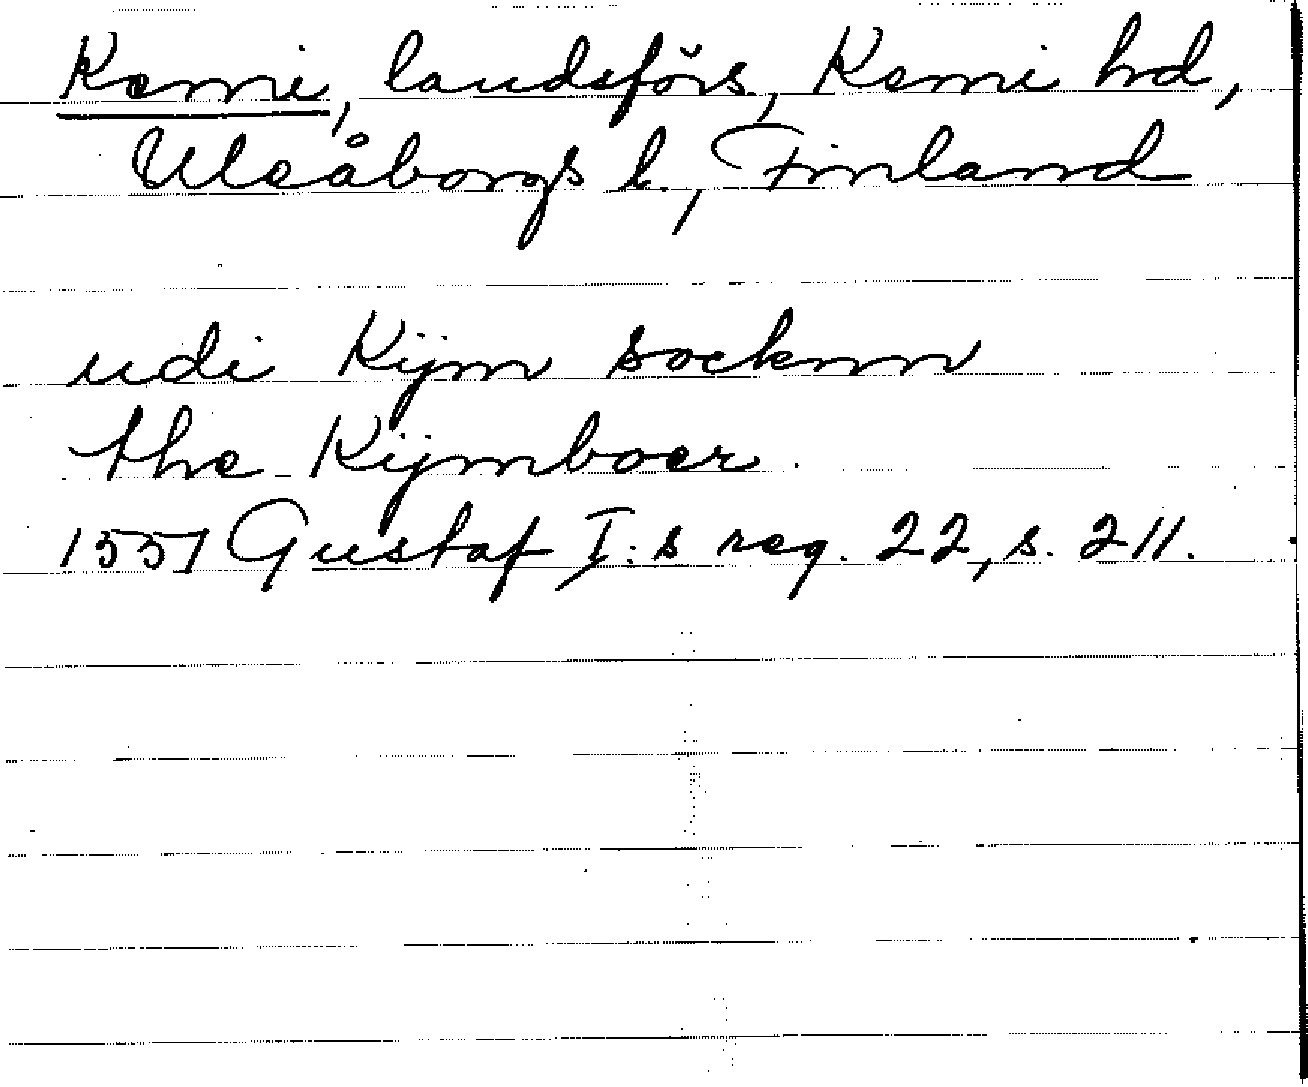 Kemi, landsförs, Kemi hd,
Uleåborgs l., Finland
udi Kÿm socknn
the Kÿmboer
1551 Gustaf I:s reg. 22, s. 211.